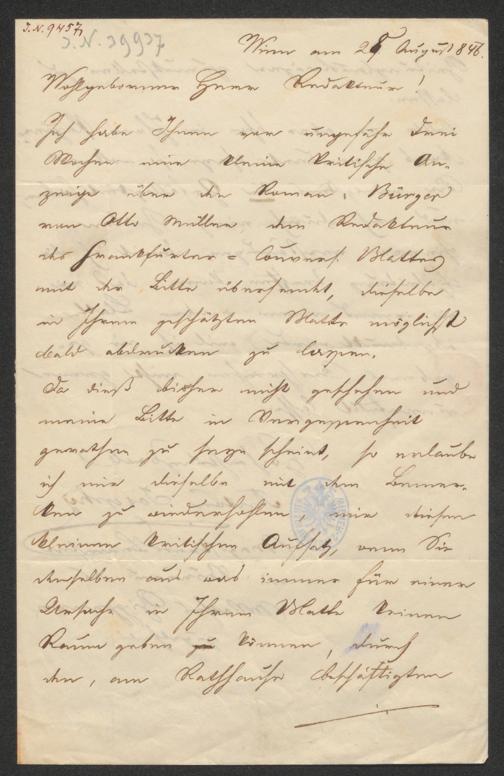 J.N. 9457
J.N. 39937
Wien am 28 August 846.
Wohlgeborener Herr Redakteur!
Ich habe Ihnen vor ungefähr drei
Wochen eine kleine kritische An-
zeige über den Roman: Bürger
von Otto Müller dem Redakteur
des Frankfurter = Convers. Blattes
mit der Bitte übersendet, dieselbe
in Ihrem geschätzten Blatte möglichst
bald abdrucken zu lassen.
Da dieß bisher nicht geschehen und
meine Bitte in Vergessenheit
gerathen zu seyn scheint, so erlaube
ich mir dieselbe mit dem Bemer-
ken zu wiederhohlen, mir diesen
kleinen kritischen Aufsatz, wenn Sie
demselben aus was immer für einer
Ursache in Ihrem Blatte keinen
Raum geben zu können, durch
den, am Rathhause beschäftigten